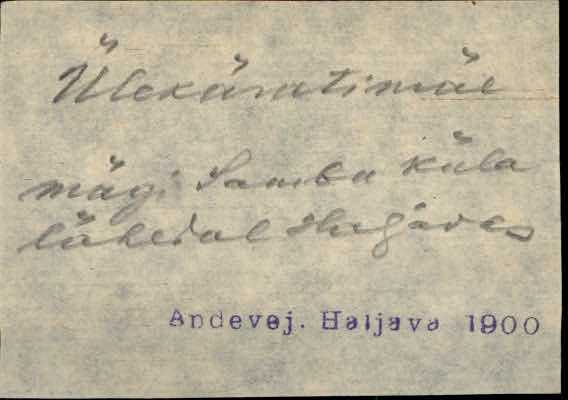 Ülekäratimäe
mägi Sambu küla
lähedal Harjavas
Andevej. Haljava 1900